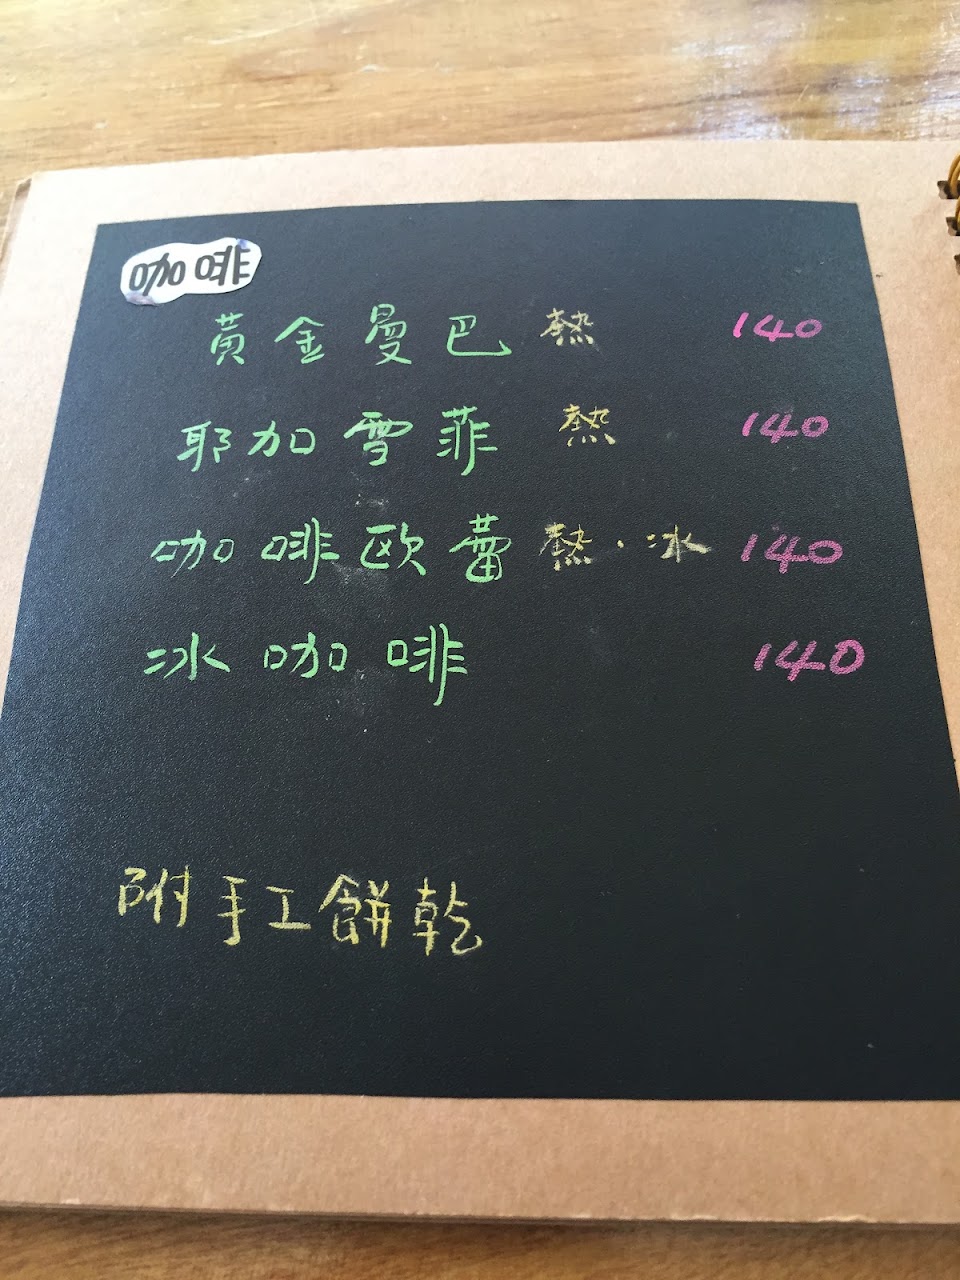 咖啡
黃金曼巴 熱 140
耶加雪菲 熱 140
咖啡歐蕾 熱.冰 140
冰咖啡 140
附手工餅乾